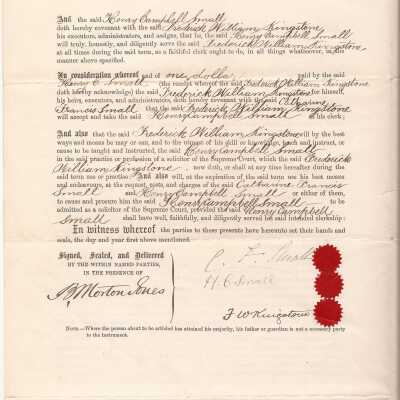 And the said Henry Campbell Small
doth hereby covenant with the said Frederick William Kingstone
his executors, administrators, and assigns, that he, the said Henry Campbell Small
will truly, honestly, and diligently serve the said Frederick William Kingstone
at all times during the said term, as a faithful clerk ought to do, in all things whatsoever, in the
manner above specified.
In consideration whereof and of one dollar paid by the said
Henry C. Small (the receipt whereof the said Frederick William Kingstone
doth hereby acknowledge) the said Frederick William Kingstone for himself,
his heirs, executors, administrators, doth hereby covenant with the said Catharine
Frances Small that the said Frederick William Kingstone
will accept and take the said Henry Campbell Small as his clerk;
And also that the said Frederick William Kingstone will by the best
ways and means he may or can, and to the utmost of his skill or knowledge, teach and instruct, or
cause to be taught and instructed, the said Henry Campbell Small
in the said practice or profession of a solicitor of the Supreme Court, which the said Frederick
William Kingstone now doth, or shall at any time hereafter during the
said term use or practise: And also will, at the expiration of the said term use his best means
and endeavours, at the request, costs, and charges of the said Catharine Frances
Small and Henry Campbell Small or either of them,
to cause and procure him the said Henry Campbell Small to be
admitted as a solicitor of the Supreme Court, provided the said Henry Campbell
Small shall have well, faithfully, and diligently served his said intended clerkship:
In witness whereof the parties to these presents have hereunto set their hands and
seals, the day and year first above mentioned.
Signed, Sealed, and Delivered
BY THE WITHIN NAMED PARTIES,
IN THE PRESENCE OF
C. F. Small
H. C. Small
Morton Jones
F W Kingstone
NOTE.—Where the person about to be articled has attained his majority, his father or guardian is not a necessary party
to the instrument.